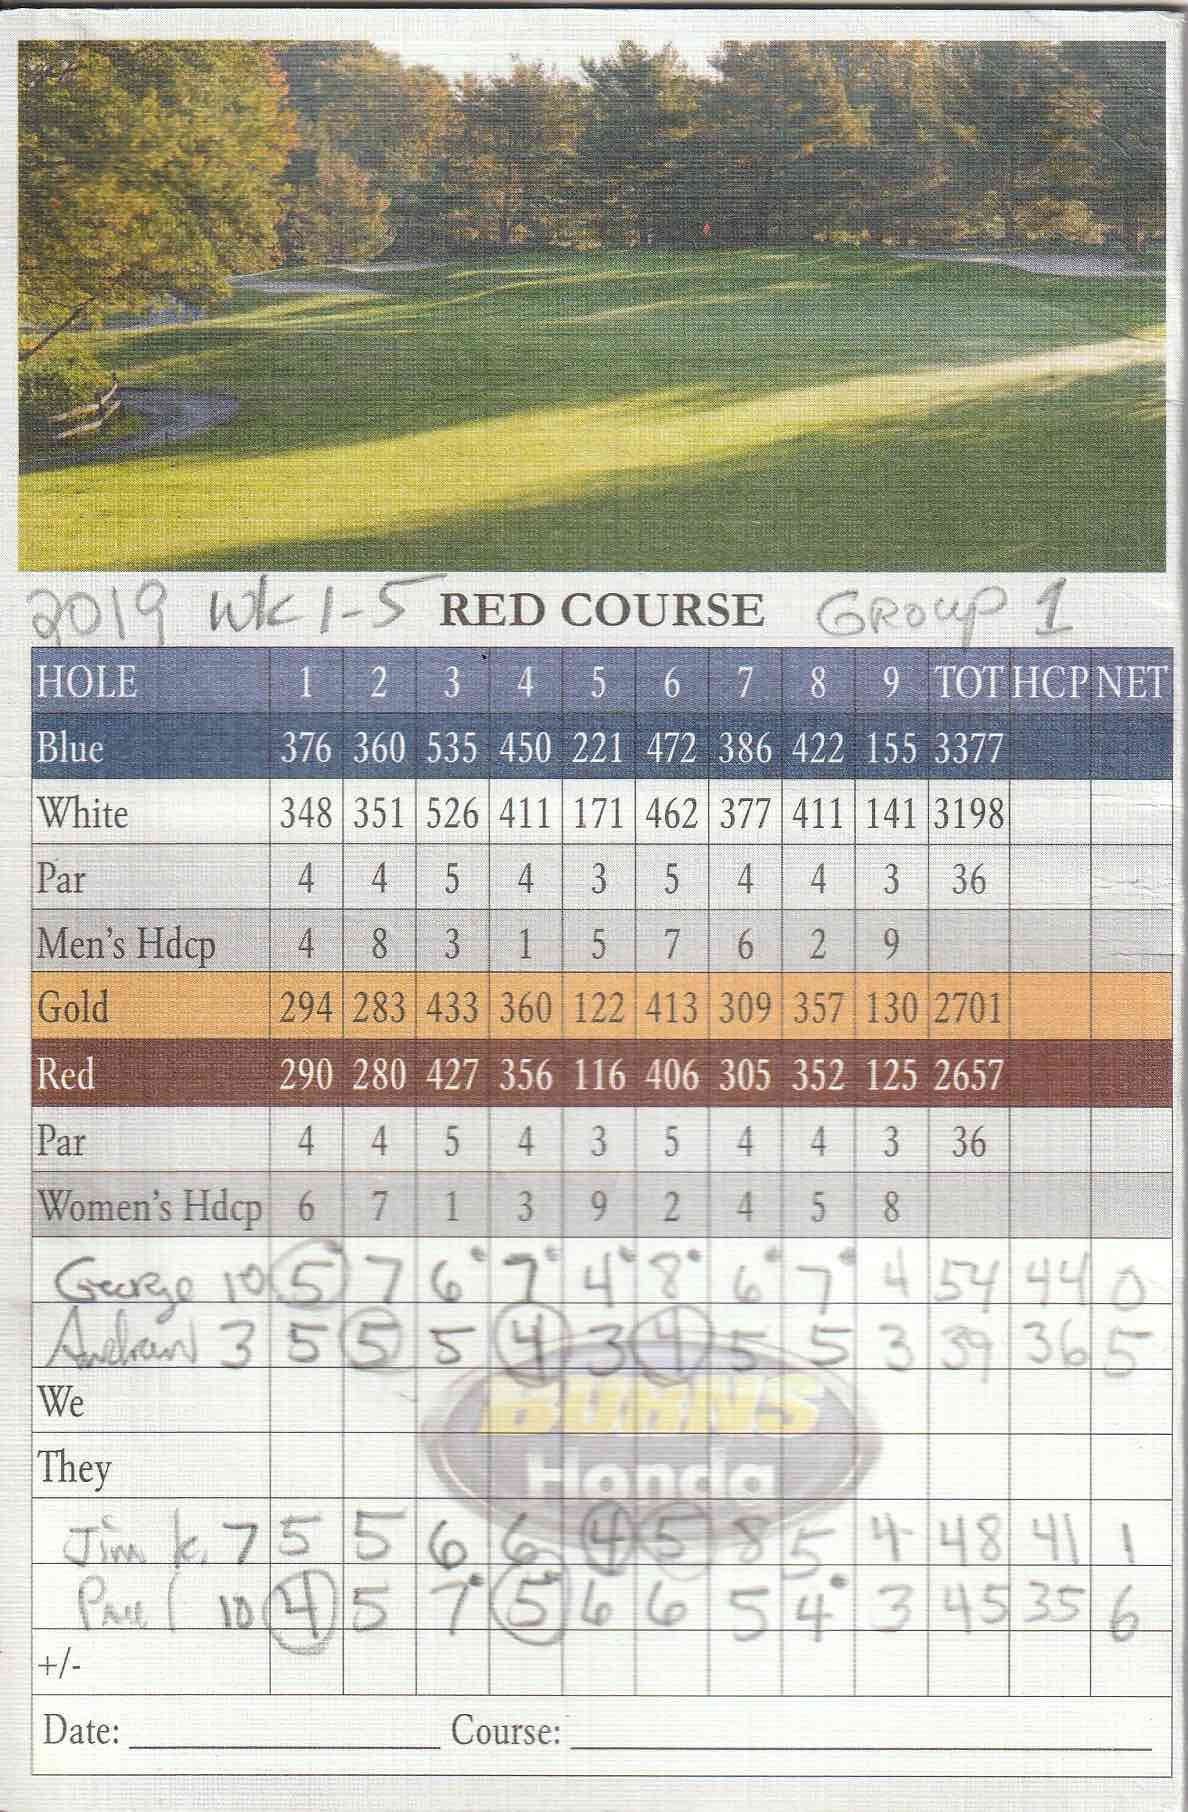 2019 WK 1-5 RED COURSE GROUP 1
HOLE 1 2 3 4 5 6 7 8 9 TOT HCP NET
Blue 376 360 535 450 221 472 386 422 155 3377
White 348 351 526 411 171 462 377 411 141 3198
Par 4 4 5 4 3 5 4 4 3 36
Men's Hdcp 4 8 3 1 5 7 6 2 9
Gold 294 283 433 360 122 413 309 357 130 2701
Red 290 280 427 356 116 406 305 352 125 2657
Par 4 4 5 4 3 5 4 4 3 36
Women's Hdcp 6 7 1 3 9 2 4 5 8
George 10 5 7 6 7 4 8 6 7 4 54 44 0
Andrew 3 5 5 5 4 3 4 5 5 3 39 36 5
We
They
BURNS
Honda
Jim K. 7 5 5 6 6 4 5 8 5 4 48 41 1
10 4 5 7 5 6 6 5 4 3 45 35 6
+/-
Date: Course: